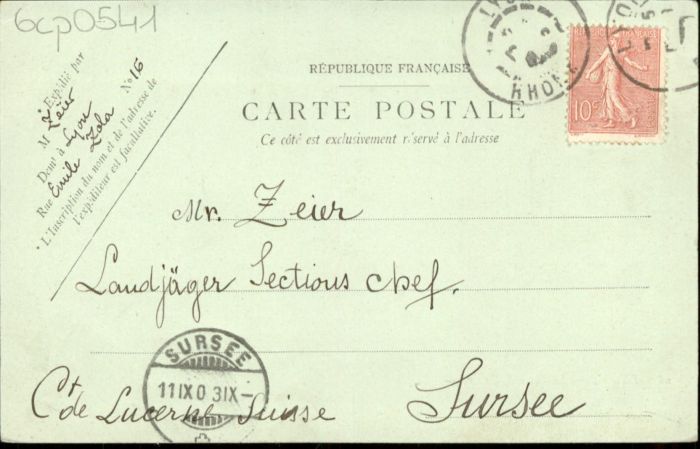 6cp0541
Expédié par
M Zeier
Demt à Lyon
Rue Emile Zola No 16
* L'Inscription du nom et de l'adresse de
l'expéditeur est facultative.
LYON
RHONE
RÉPUBLIQUE FRANÇAISE
CARTE POSTALE
Ce côté est exclusivement réservé à l'adresse
10c
Mr. Zeier
Landjäger Sections Chef.
SURSEE
11 IX 0 3 IX-
Ct. de Lucerne Suisse Sursee